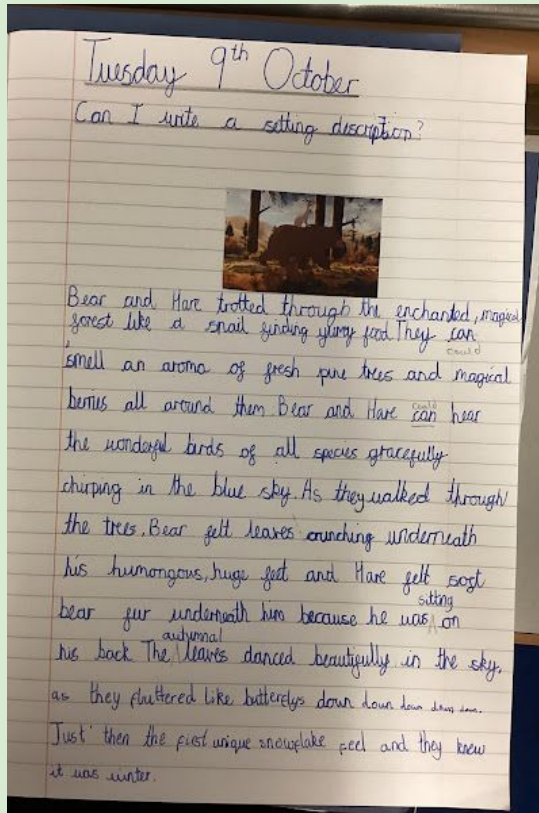 Tuesday 9th October
Can I write a setting description?
Bear and Hare trotted through the enchanted, magical
forest like a snail finding yummy food. They can
could
smell an aroma of fresh pine trees and magical
berries all around them. Bear and Hare can could hear
the wonderful birds of all species gracefully
chirping in the blue sky. As they walked through
the trees, Bear felt leaves crunching underneath
his humongous, huge feet and Hare felt soft
sitting
bear fur underneath him because he was on
autumnal
his back. The leaves danced beautifully in the sky,
as they fluttered like butterflys down down down down down.
Just then the first unique snowflake feel and they knew
it was winter.